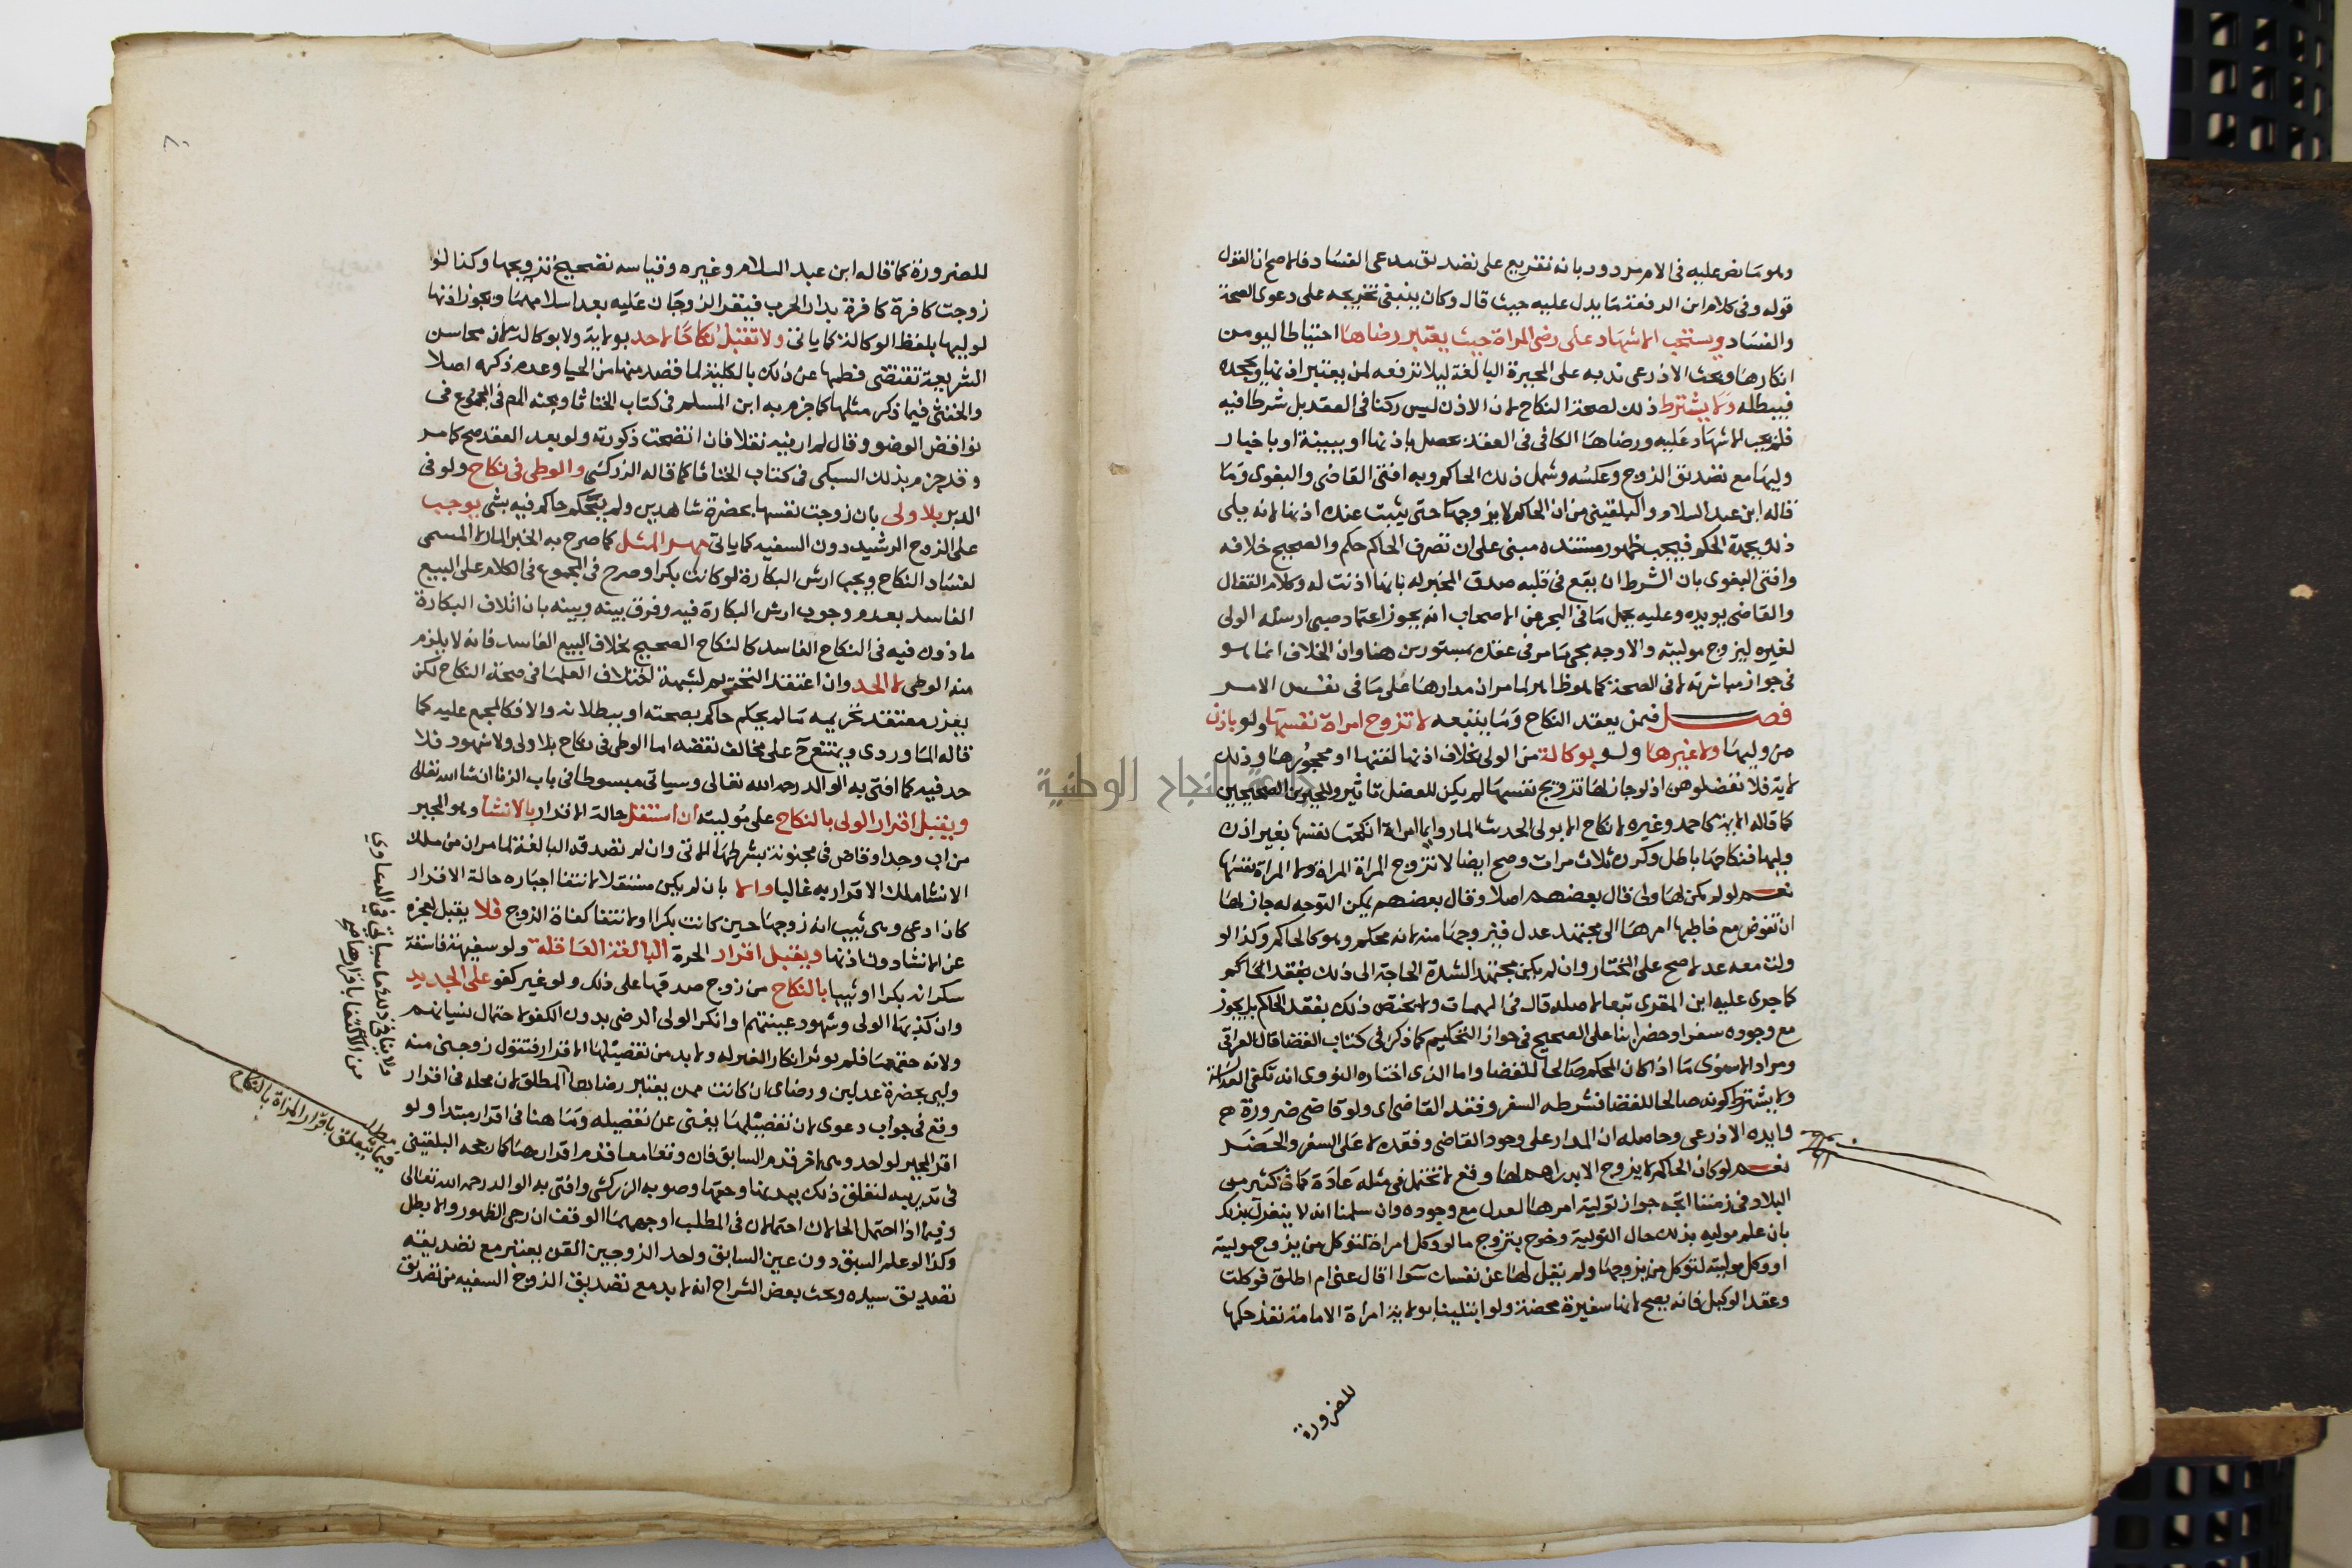 وهو ما نص عليه في الام مردود بانه تفريع على تصديق مدعى الفساد فالاصح ان القول
قوله وفي كلام ابن الرفعة ما يدل عليه حيث قال وكان ينبغي تخريجه على دعوى الصحة
والفساد ويستحب الاشهاد على رضى المراة حيث يعتبر رضاها احتياطا ليومن
انكارها وبحث الاذرعى ندبه على المجبرة البالغة ليلا ترفعه لمن يعتبر اذنها ويجحده
فيبطله ولا يشترط ذلك لصحة النكاح لان الاذن ليس ركنا في العقد بل شرطا فيه
فلم يجب الاشهاد عليه ورضاها الكافي في العقد يحصل باذنها او ببينة او باخبار
وليها مع تصديق الزوج وعكسه وشمل ذلك الحاكم وبه افتى القاضى والبغوى وما
قاله ابن عبد السلام والبلقينى من ان الحاكم لا يزوجها حتى يثبت عنده اذنها لانه يلى
ذلك بجهة الحكم فيجب ظهور مستنده مبنى على ان تصرف الحاكم حكم والصحيح خلافه
وافتى البغوى بان الشرط ان يقع في قلبه صدق المخبر له بانها اذنت له وكلام القفال
والقاضى يويده وعليه يحمل ما في البحر عن الاصحاب انه يجوز اعتماد صبى ارسله الولى
لغيره ليزوج موليته والاوجه مجى ما مر في عقده بمستورين هنا وان الخلاف انما هو
في جواز مباشرته لا في الصحة كما هو ظاهر لما مر ان مدارها على ما في نفس الامر
فصل فيمن يعقد النكاح وما يتبعه لا تزوج امراة نفسها ولو باذن
من وليها ولا غيرها ولو بوكالة من الولى بخلاف اذنها لقنها او محجورها وذلك
لاية فلا تعضلوهن اذ لو جاز لها تزويج نفسها لم يكن للعضل تاثير وللخبرين الصحيحين
كما قاله الايمة كاحمد وغيره لا نكاح الا بولى الحديث المار وايما امراة انكحت نفسها بغير اذن
وليها فنكاحها باطل وكرره ثلاث مرات وصح ايضا لا تزوج المراة المراة ولا المراة نفسها
نعم لو لم يكن لها ولى قال بعضهم اصلا وقال بعضهم يمكن التوجه له جاز لها
ان تفوض مع خاطبها امرها الى مجتهد عدل فيزوجها منه لانه محكم وهو كالحاكم وكذا لو
ولت معه عدلا صح على المختار وان لم يكن مجتهدا لشدة الحاجة الى ذلك بفقد الحاكم
كما جرى عليه ابن المقرى تبعا لاصله قال في المهمات ولا يختص ذلك بفقد الحاكم بل يجوز
مع وجوده سفرا وحضرا بنا على الصحيح في جواز التحكيم كما ذكر في كتاب القضا قال العراقى
ومراد الاسنوى ما اذا كان المحكم صالحا للقضا واما الذى اختاره النووى انه تكفي العدالة
ولا يشترط كونه صالحا للقضا فشرطه السفر وفقد القاضى اى ولو قاضى ضرورة ح
وايده الاذرعى وحاصله ان المدار على وجود القاضى وفقده لا على السفر والحضر
نعم لو كان الحاكم لا يزوج الا بدراهم لها وقع لا تحتمل في مثله عادة كما في كثير من
البلاد في زمننا اتجه جواز تولية امرها لعدل مع وجوده وان سلمنا انه لا ينعزل بذلك
بان علم موليه بذلك حال التولية وخرج بتزوج ما لو وكل امراة لتوكل من يزوج موليته
او وكل موليته لتوكل من يزوجها ولم يقل لها عن نفسك سوا اقال عنى ام اطلق فوكلت
وعقد الوكيل فانه يصح لانها سفيرة محضة ولو ابتلينا بولاية امراة الامامة نفذ حكمها
للضرورة
٨٠
للضرورة كما قاله ابن عبد السلام وغيره وقياسه تصحيح تزويجها وكذا لو
زوجت كافرة كافرة بدار الحرب فيقر الزوجان عليه بعد اسلامهما ويجوز اذنها
لوليها بلفظ الوكالة كما ياتى ولا تقبل نكاحا لاحد بولاية ولا بوكالة لان محاسن
الشريعة تقتضى فطمها عن ذلك بالكلية لما قصد منها من الحيا وعدم ذكره اصلا
والخنثى فيما ذكر مثلها كما جزم به ابن المسلم في كتاب الخناثا وبحثه المص في المجموع في
نواقض الوضو وقال لم ار فيه نقلا فان اتضحت ذكورته ولو بعد العقد صح كما مر
وقد جزم بذلك السبكى في كتاب الخناثا كما قاله الزركشى والوطى في نكاح ولو في
الدبر بلا ولى بان زوجت نفسها بحضرة شاهدين ولم يحكم حاكم فيه بشى يوجب
على الزوج الرشيد دون السفيه كما ياتى مهر المثل كما صرح به الخبر المار لا المسمى
لفساد النكاح ويجب ارش البكارة لو كانت بكرا وصرح في المجموع في الكلام على البيع
الفاسد بعدم وجوب ارش البكارة فيه وفرق بينه وبينه بان اتلاف البكارة
ماذون فيه في النكاح الفاسد كالنكاح الصحيح بخلاف البيع الفاسد فانه لا يلزم
منه الوطى لا الحد وان اعتقد التحريم لشبهة اختلاف العلما في صحة النكاح لكن
يعزر معتقد تحريمه ما لم يحكم حاكم بصحته او ببطلانه والا فكالمجمع عليه كما
قاله الماوردى ويمتنع ح على مخالف نقضه اما الوطى في نكاح بلا ولى ولا شهود فلا
حد فيه كما افتى به الوالد رحمه الله تعالى وسياتى مبسوطا في باب الزنا ان شا الله تعالى
ويقبل اقرار الولى بالنكاح على موليته ان استقل حالة الاقرار بالانشا وهو المجبر
من اب وجد او قاض في مجنونة بشرطها الاتى وان لم تصدقه البالغة لما مر ان من ملك
الانشا ملك الاقرار به غالبا والا بان لم يكن مستقلا لانتفا اجباره حالة الاقرار
كان ادعى وهى ثيب انه زوجها حين كانت بكرا او لانتفا كفاة الزوج فلا يقبل لعجزه
عن الانشا دون اذنها ويقبل اقرار الحرة البالغة العاقلة ولو سفيهة فاسقة
سكرانه بكرا او ثيبا بالنكاح من زوج صدقها على ذلك ولو غير كفو على الجديد
وان كذبها الولى وشهود عينتهم او انكر الولى الرضى بدون الكفو لاحتمال نسيانهم
ولانه حقهما فلم يوثر انكار الغير له ولا بد من تفصيلها الاقرار فتقول زوجنى منه
وليى بحضرة عدلين ورضاى ان كانت ممن يعتبر رضاها المطلق لان محله في اقرار
وقع في جواب دعوى لان تفصيلها يغنى عن تفصيله وما هنا في اقرار مبتدا ولو
اقر المجبر لواحد وهى لاخر قدم السابق فان وقعا معا قدم اقرارها كما رجحه البلقينى
في تدريبه لتعلق ذلك ببدنها وحقها وصوبه الزركشى وافتى به الوالد رحمه الله تعالى
وفيما اذا احتمل الحالان احتمالان في المطلب اوجههما الوقف ان رجى الظهور والا بطل
وكذا لو علم السبق دون عين السابق ولحد الزوجين القن يعتبر مع تصديقه
تصديق سيده وبحث بعض الشراح انه لا بد مع تصديق الزوج السفيه من تصديق
ولا ينافي ذلك ما سياتى في الدعاوي
من الاكتفا باقرارها صح
مطلب
فيما يتعلق باقرار المراة بالنكاح
جامعة النجاح الوطنية